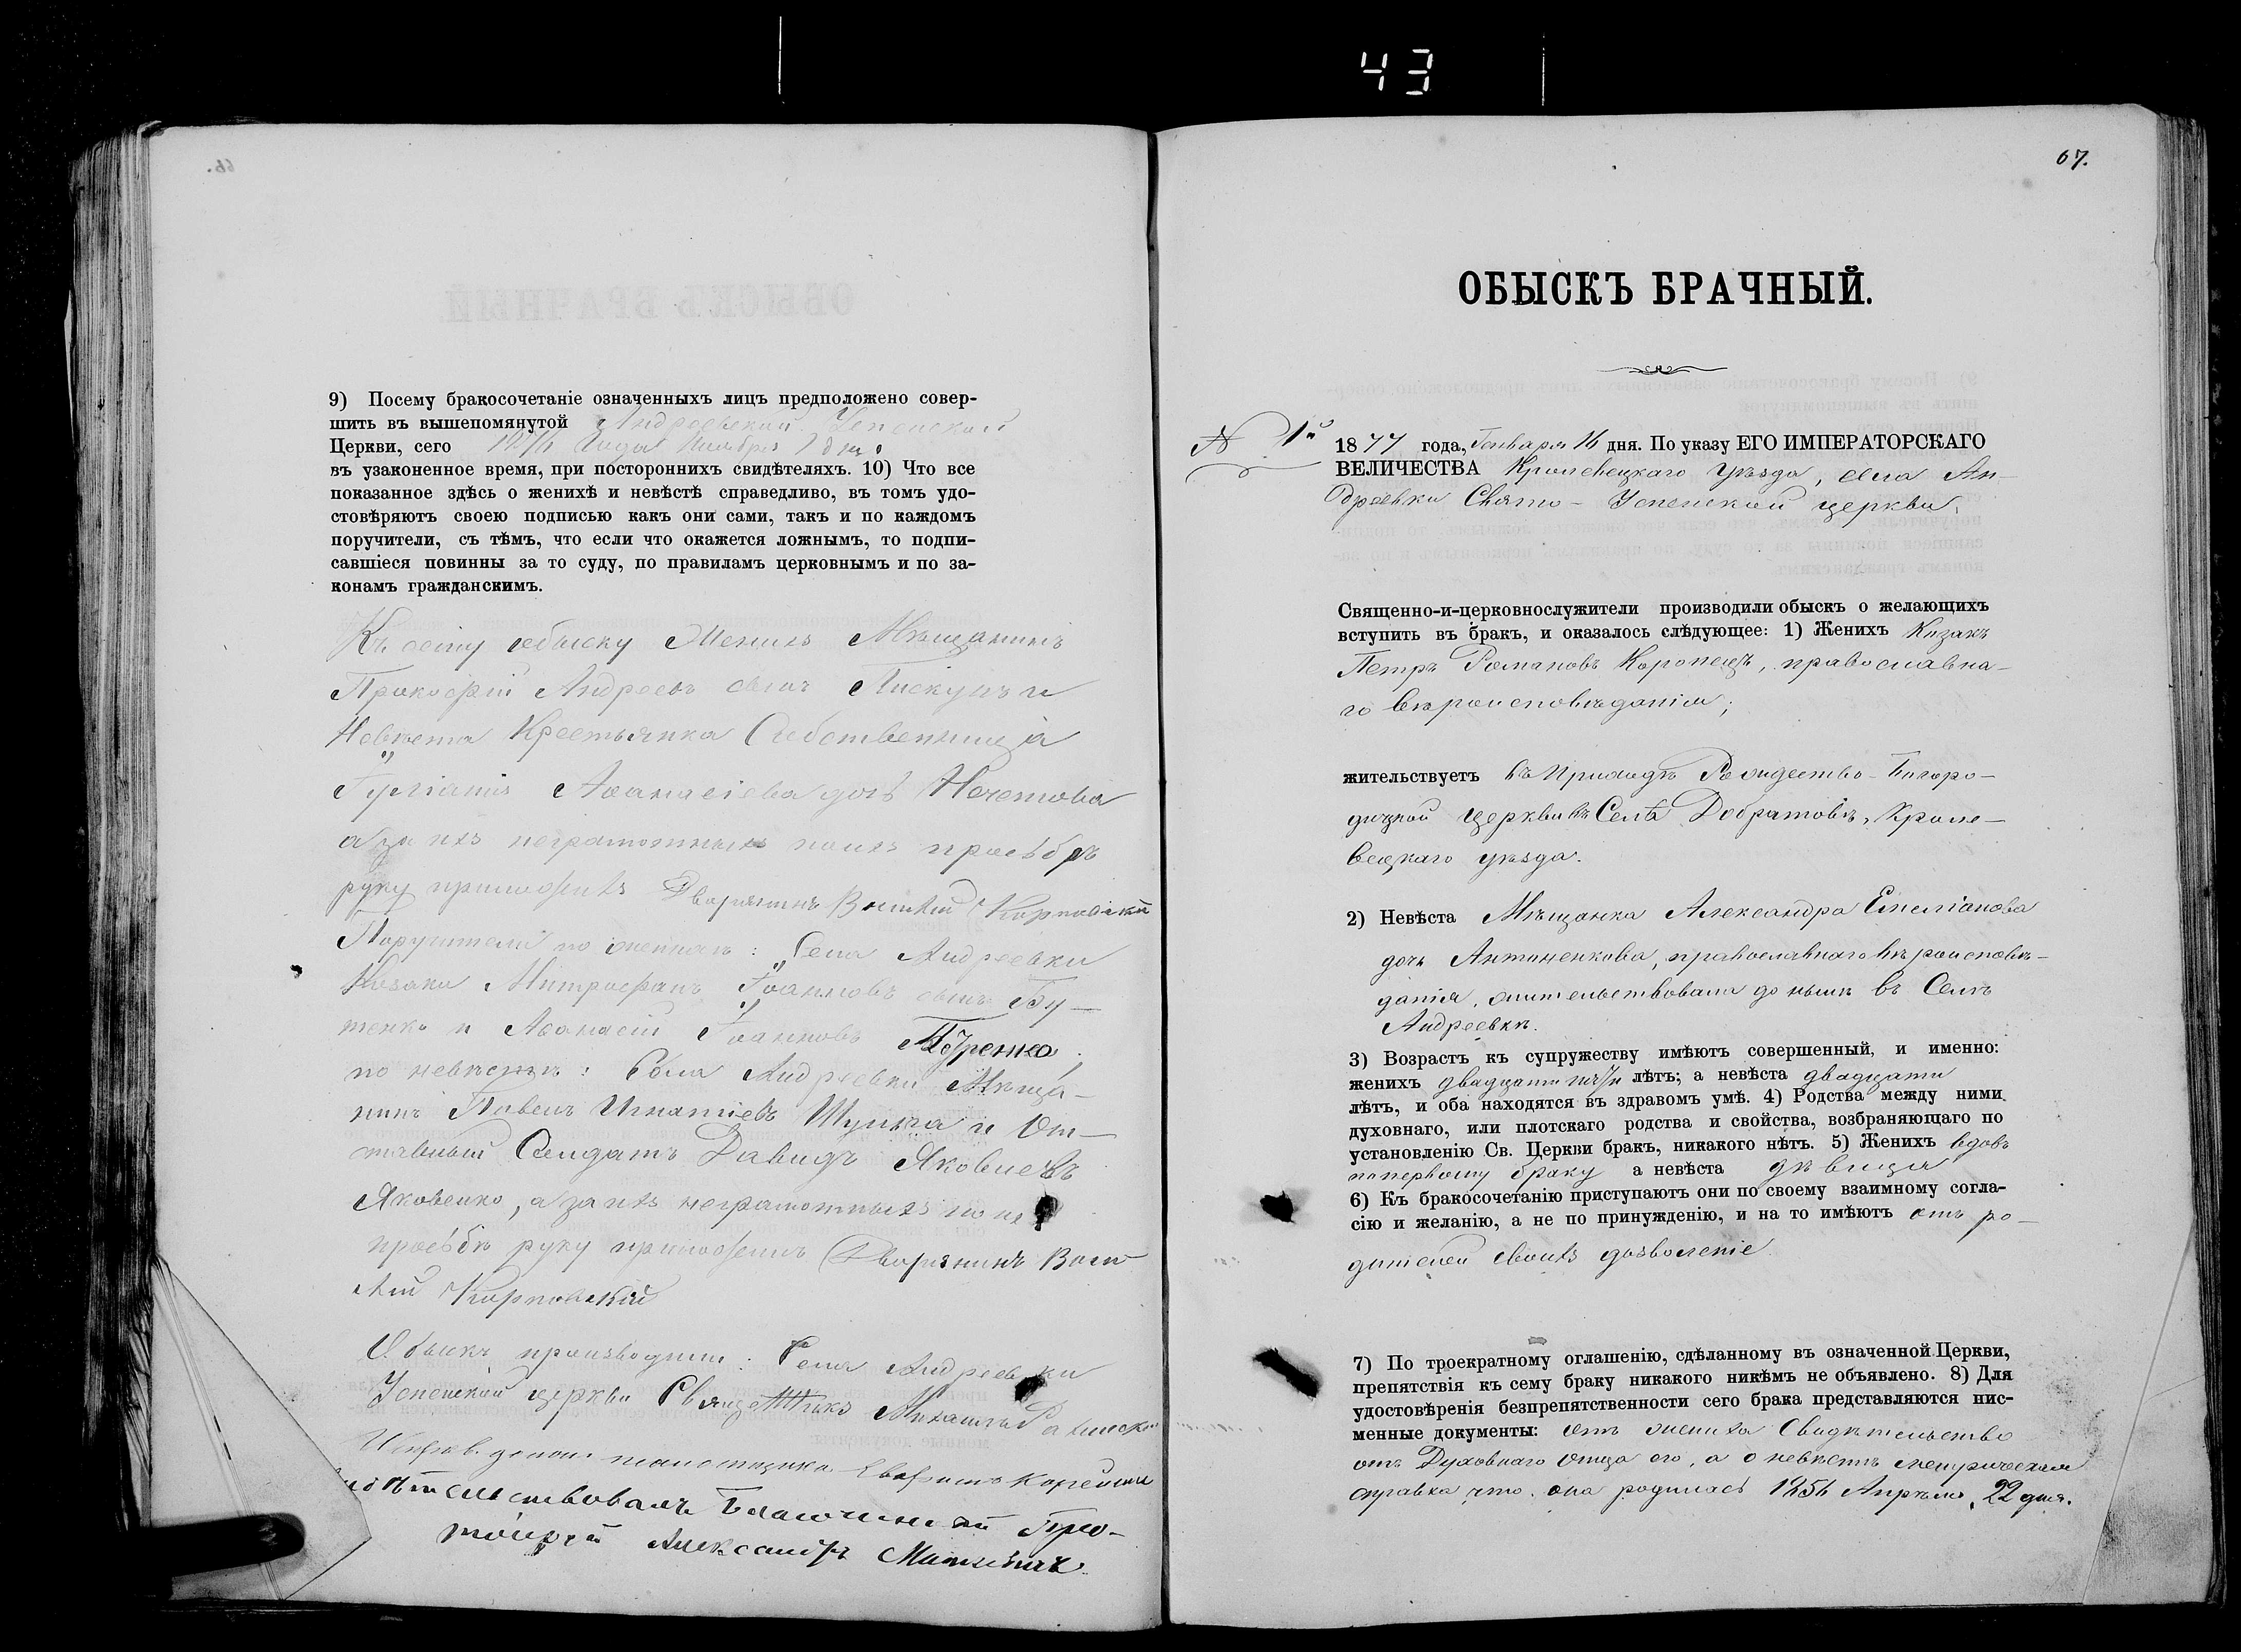 43
9) Посему бракосочетаніе означенныхъ лицъ предположено совер-
шить въ вышепомянутой Андреевской Успенской
Церкви, сего 1876 года Ноября дня
въ узаконенное время, при постороннихъ свидѣтеляхъ. 10) Что все
показанное здѣсь о женихѣ и невѣстѣ справедливо, въ томъ удо-
стовѣряютъ своею подписью какъ они сами, такъ и по каждомъ
поручители, съ тѣмъ, что если что окажется ложнымъ, то подпи-
савшіеся повинны за то суду, по правиламъ церковнымъ и по за-
конамъ гражданскимъ.
Къ сему обыску Женихъ Мѣщанинъ
Прокофій Андреевъ сынъ Пискунъ и
Невѣста Крестьянка Собственница
Іуліанія Аѳанасіева дочь
а за ихъ неграмотныхъ по ихъ просьбѣ
руку приложилъ Дворянинъ Василій Карповскій
Поручители по женихѣ: Села Андреевки
Козаки Митрофанъ Іоанновъ сынъ Бу-
тенко и Аѳанасій Іоанновъ
по невѣстѣ: Села Андреевки Мѣща-
нинъ Павелъ Игнатіевъ Шулька и От-
ставный Солдатъ Давидъ Яковлевъ
Яковенко, а за ихъ неграмотныхъ по их
просьбѣ руку приложилъ Дворянинъ Васи-
лий Карповскій
Обыскъ производили: Села Андреевки
Успенской церкви Священникъ Михаилъ
должн. псаломщика
Свидѣтельствовалъ Благочинный Про-
тоіерей Александръ
67.
ОБЫСКЪ БРАЧНЫЙ.
№ 1й
1877 года, Генваря 16 дня. По указу ЕГО ИМПЕРАТОРСКАГО
ВЕЛИЧЕСТВА Кролевецкаго уѣзда, села Ан-
дреевки Свято-Успенской церкви,
Священно-и-церковнослужители производили обыскъ о желающихъ
вступить въ бракъ, и оказалось слѣдующее: 1) Женихъ Козакъ
Петръ Романовъ Коропецъ, православна-
го вѣроисповѣданія;
жительствуетъ въ Приходѣ Рождество-Богоро-
дичной церкви въ Селѣ Добратовѣ, Кроле-
вецкаго уѣзда.
2) Невѣста Мѣщанка Александра Емеліанова
дочь Антоненкова, православнаго вѣроисповѣ-
данія, жительствовала до нынѣ въ Селѣ
Андреевкѣ.
3) Возрастъ къ супружеству имѣютъ совершенный, и именно:
женихъ двадцати пяти лѣтъ; а невѣста двадцати
лѣтъ, и оба находятся въ здравомъ умѣ. 4) Родства между ними
духовнаго, или плотскаго родства и свойства, возбраняющаго по
установленію Св. Церкви бракъ, никакого нѣтъ. 5) Женихъ вдовъ
по первому браку а невѣста дѣвица
6) Къ бракосочетанію приступаютъ они по своему взаимному согла-
сію и желанію, а не по принужденію, и на то имѣютъ отъ ро-
дителей своихъ дозволеніе
7) По троекратному оглашенію, сдѣланному въ означенной Церкви,
препятствія къ сему браку никакого никѣмъ не объявлено. 8) Для
удостовѣренія безпрепятственности сего брака представляются пис-
менные документы: отъ жениха Свидѣтельство
отъ Духовнаго отца его, а о невѣстѣ метрическая
справка что она родилась 1856 Апрѣля 22 дня.